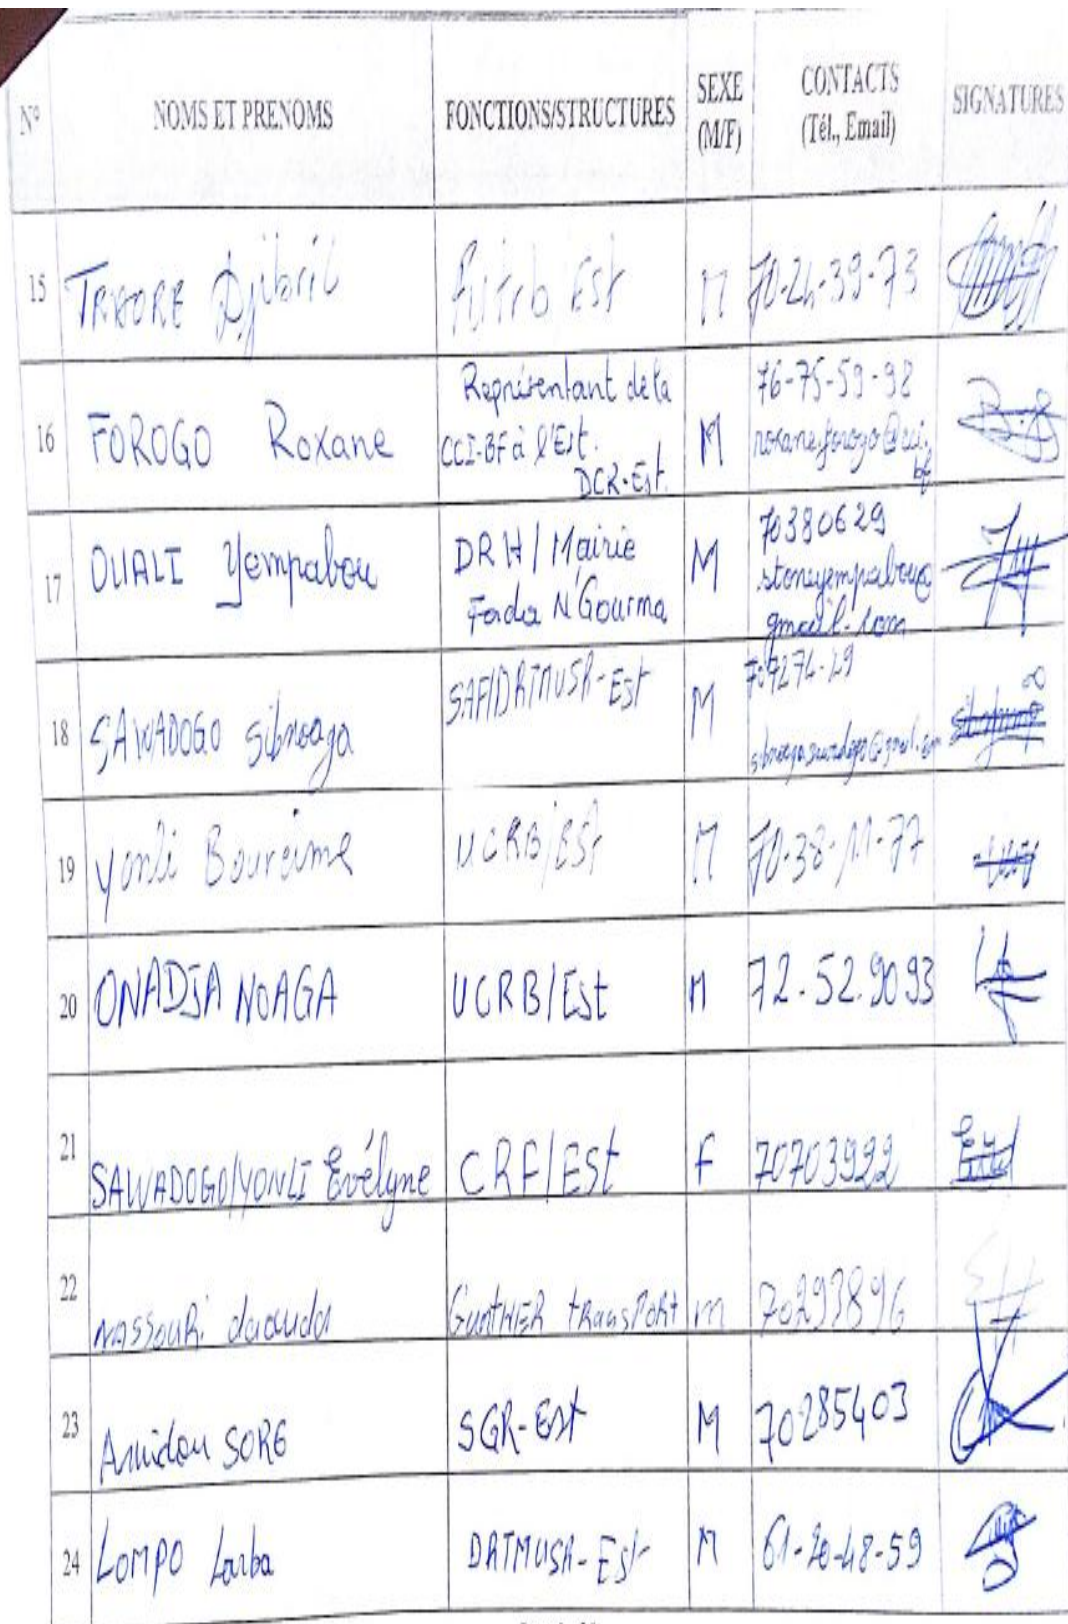 N° NOMS ET PRENOMS FONCTIONS/STRUCTURES SEXE (M/F) CONTACTS (Tél., Email) SIGNATURES
15 TRAORE Djibril Est M 70-24-39-73
16 FOROGO Roxane Représentant de la CCI-BF à l'Est. DCR-Est. M 76-75-59-98 roxane.forogo@cci.bf
17 OUALI Yempabou DRH/Mairie Fada N'Gourma M 70380629 stoneyempabou@gmail.com
18 SAWADOGO Sibnoaga SAF/DRTMUSR-Est M 707274-29
19 Yonli Boureima UCRB/Est M 70-38-11-77
20 ONADJA NOAGA UCRB/Est M 72.52.9093
21 SAWADOGO/YONLI Evélyne CRF/Est F 70703922
22 NASSOURI daouda GuntHER tRansPORt m 70293896
23 Amidou SORE SGR-Est M 70285403
24 LOMPO Larba DRTMUSR-Est M 61-20-48-59